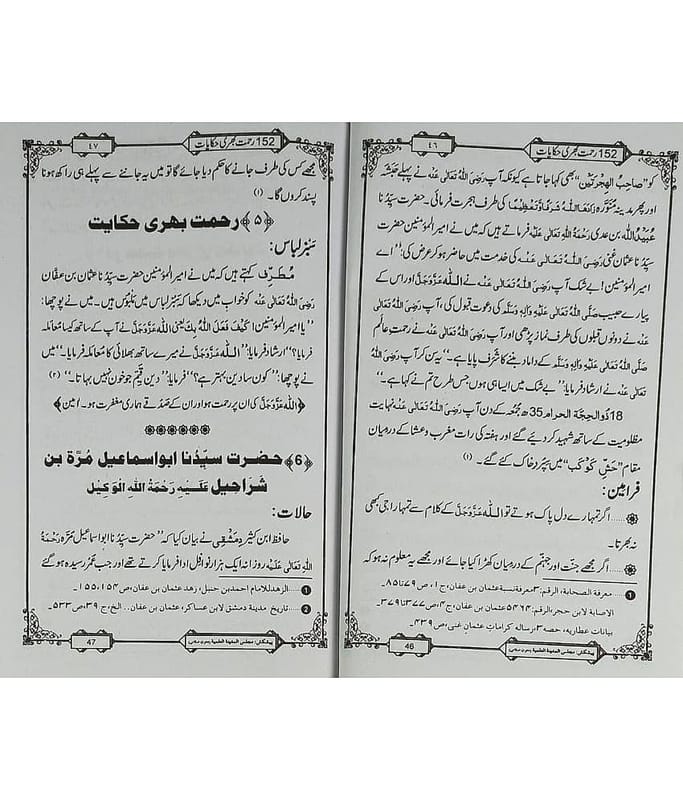 152 رحمت بھری حکایات
٤٦
کو ”صاحِبُ الْہِجْرَتَیْن“ بھی کہا جاتا ہے کیونکہ آپ رَضِیَ اللہُ تَعَالٰی عَنْہ نے پہلے حبشہ
اور پھر مدینہ منوَّرہ زَادَهَا اللهُ شَرَفًا وَّتَعْظِيْمًا کی طرف ہجرت فرمائی۔ حضرت سیِّدُنا
عُبَیْدُ اللّٰہ بن عدی رَحْمَۃُ اللہِ تَعَالٰی عَلَیْہ فرماتے ہیں کہ میں نے امیر المؤمنین حضرت
سیِّدُنا عثمان غنی رَضِیَ اللہُ تَعَالٰی عَنْہ کی خدمت میں حاضر ہو کر عرض کی: ”اے
امیر المؤمنین! بے شک آپ رَضِیَ اللہُ تَعَالٰی عَنْہ نے اللّٰہ عَزَّوَجَلَّ اور اس کے
پیارے حبیب صَلَّی اللہُ تَعَالٰی عَلَیْہِ وَاٰلِہٖ وَسَلَّم کی دعوت قبول کی، آپ رَضِیَ اللہُ تَعَالٰی
عَنْہ نے دونوں قبلوں کی طرف نماز پڑھی اور آپ رَضِیَ اللہُ تَعَالٰی عَنْہ نے رحمتِ عالَم
صَلَّی اللہُ تَعَالٰی عَلَیْہِ وَاٰلِہٖ وَسَلَّم کے داماد بننے کا شَرَف پایا ہے۔“ یہ سن کر آپ رَضِیَ اللہُ
تَعَالٰی عَنْہ نے ارشاد فرمایا: ”بے شک میں ایسا ہی ہوں جس طرح تم نے کہا ہے۔“
18 ذوالحجۃ الحرام 35ھ جُمُعہ کے دن آپ رَضِیَ اللہُ تَعَالٰی عَنْہ نہایت
مظلومیت کے ساتھ شہید کر دیئے گئے اور ہفتہ کی رات مغرب و عشا کے درمیان
مقام ”حَشِّ کَوْکَب“ میں سِپُردِ خاک کئے گئے۔ (۱)
فرامین:
اگر تمہارے دل پاک ہوتے تو اللّٰہ عَزَّوَجَلَّ کے کلام سے تمہارا جی کبھی
نہ بھرتا۔
اگر مجھے جنّت اور جہنّم کے درمیان کھڑا کیا جائے اور مجھے یہ معلوم نہ ہو کہ
1 ..... معرفة الصحابة، الرقم:۳معرفة نسبة عثمان بن عفان، ج۱، ص۷۹تا۸۵.
الاصابة لابن حجر، الرقم۵۴۶۴ عثمان بن عفان، ج۴، ص۳۷۷تا۳۷۹.
بیانات عطاریه، حصه۳، رساله کراماتِ عثمانِ غنی، ص۴۳۹.
پیشکش: مجلس المدینة العلمیة (دعوتِ اسلامی)
46
152 رحمت بھری حکایات
٤٧
مجھے کس کی طرف جانے کا حکم دیا جائے گا تو میں یہ جاننے سے پہلے ہی راکھ ہونا
پسند کروں گا۔ (۱)
﴿۵﴾ رحمت بھری حکایت
سَبْز لِباس:
مُطَرِّف کہتے ہیں کہ میں نے امیر المؤمنین حضرت سیِّدُنا عثمان بن عفّان
رَضِیَ اللہُ تَعَالٰی عَنْہ کو خواب میں دیکھا کہ سَبْز لباس میں مَلْبُوس ہیں۔ میں نے پوچھا:
”یا امیر المؤمنین! کَیْفَ فَعَلَ اللہُ بِکَ یعنی اللہ عَزَّوَجَلَّ نے آپ کے ساتھ کیسا معاملہ
فرمایا؟“ ارشاد فرمایا: ”اللّٰہ عَزَّوَجَلَّ نے میرے ساتھ بھلائی کا مُعامَلہ فرمایا۔“ میں
نے پوچھا: ”کون سا دین بہتر ہے؟“ فرمایا: ”دینِ قَیِّم جو خون نہیں بہاتا۔“ (۲)
﴿اللہ عَزَّوَجَلَّ کی ان پر رحمت ہو اور ان کے صَدْقے ہماری مغفرت ہو۔ امین﴾
﴿6﴾ حضرت سیِّدُنا ابو اسماعیل مُرَّہ بن
شراحیل عَلَیْہِ رَحْمَۃُ اللہِ الْوَکِیْل
حالات:
حافظ ابن کثیر دِمَشْقی نے بیان کیا کہ ”حضرت سیِّدُنا ابو اسماعیل مُرَّہ رَحْمَۃُ
اللہِ تَعَالٰی عَلَیْہ روزانہ ایک ہزار نوافل ادا فرمایا کرتے تھے اور جب عُمْر رسیدہ ہو گئے
1 ..... الزهد للامام احمد بن حنبل، زهد عثمان بن عفان، ص۱۵۴، ۱۵۵.
2 ..... تاریخ مدینة دمشق لابن عساکر، عثمان بن عفان.. الخ، ج۳۹، ص۵۳۳.
پیشکش: مجلس المدینة العلمیة (دعوتِ اسلامی)
47